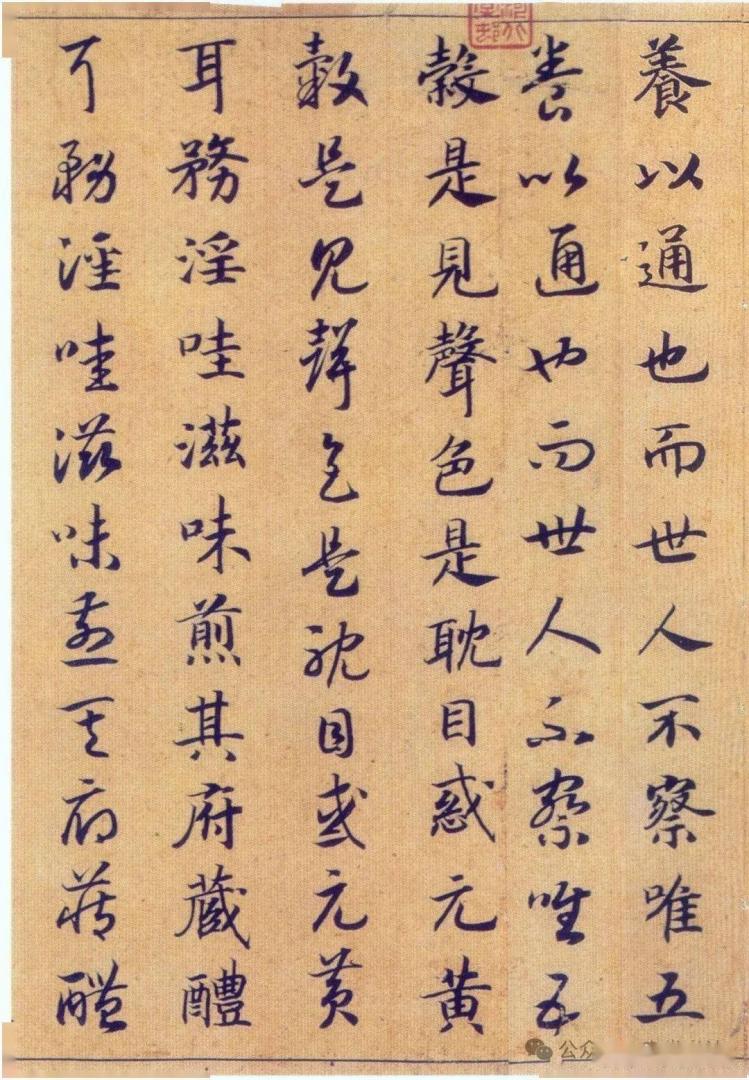 養以通也而世人不察唯五
養以通也而世人不察唯五
穀是見聲色是耽目惑元黄
穀是見聲色是耽目惑元黄
耳務淫哇滋味煎其府藏醴
耳務淫哇滋味煎其府藏醴
公众